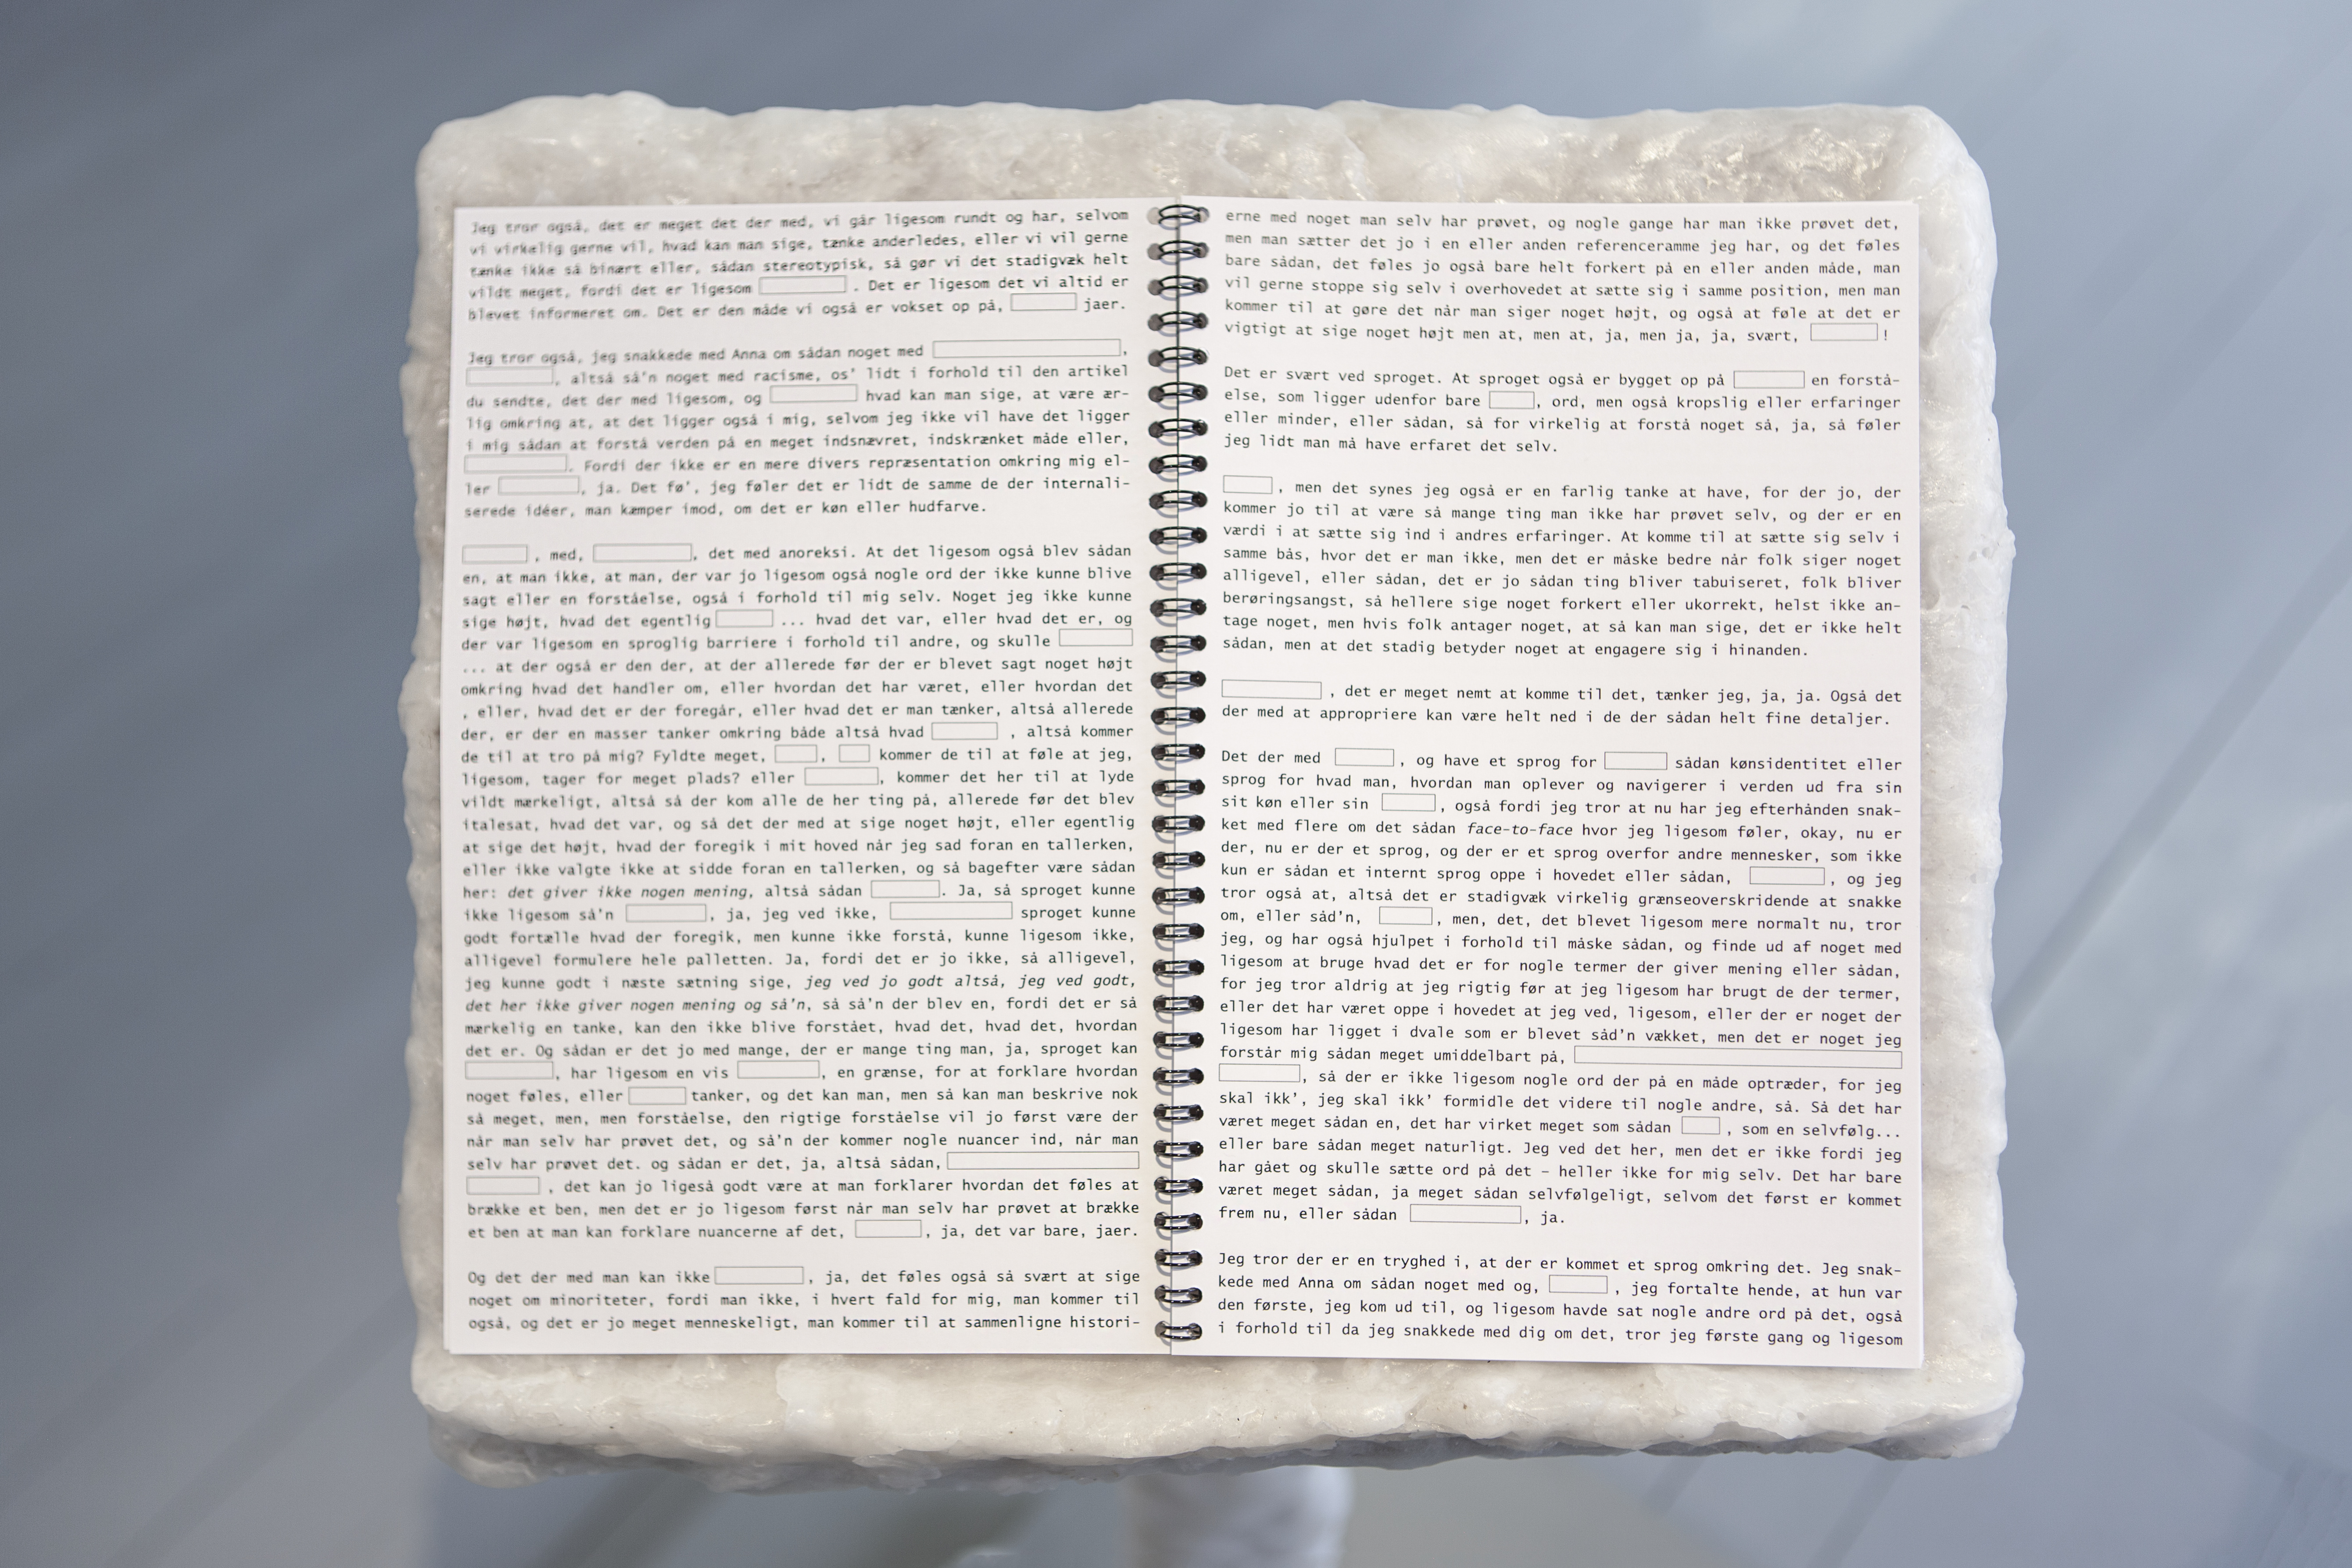 Jeg tror også, det er meget det der med, vi går ligesom rundt og har, selvom
vi virkelig gerne vil, hvad kan man sige, tænke anderledes, eller vi vil gerne
tænke ikke så binært eller, sådan stereotypisk, så gør vi det stadigvæk helt
vildt meget, fordi det er ligesom . Det er ligesom det vi altid er
blevet informeret om. Det er den måde vi også er vokset op på, jaer.
Jeg tror også, jeg snakkede med Anna om sådan noget med ,
, altså så'n noget med racisme, os' lidt i forhold til den artikel
du sendte, det der med ligesom, og hvad kan man sige, at være ær-
lig omkring at, at det ligger også i mig, selvom jeg ikke vil have det ligger
i mig sådan at forstå verden på en meget indsnævret, indskrænket måde eller,
. Fordi der ikke er en mere divers repræsentation omkring mig el-
ler , ja. Det fø', jeg føler det er lidt de samme de der internali-
serede idéer, man kæmper imod, om det er køn eller hudfarve.
, med, , det med anoreksi. At det ligesom også blev sådan
en, at man ikke, at man, der var jo ligesom også nogle ord der ikke kunne blive
sagt eller en forståelse, også i forhold til mig selv. Noget jeg ikke kunne
sige højt, hvad det egentlig ... hvad det var, eller hvad det er, og
der var ligesom en sproglig barriere i forhold til andre, og skulle
... at der også er den der, at der allerede før der er blevet sagt noget højt
omkring hvad det handler om, eller hvordan det har været, eller hvordan det
, eller, hvad det er der foregår, eller hvad det er man tænker, altså allerede
der, er der en masser tanker omkring både altså hvad , altså kommer
de til at tro på mig? Fyldte meget, , kommer de til at føle at jeg,
ligesom, tager for meget plads? eller , kommer det her til at lyde
vildt mærkeligt, altså så der kom alle de her ting på, allerede før det blev
italesat, hvad det var, og så det der med at sige noget højt, eller egentlig
at sige det højt, hvad der foregik i mit hoved når jeg sad foran en tallerken,
eller ikke valgte ikke at sidde foran en tallerken, og så bagefter være sådan
her: det giver ikke nogen mening, altså sådan . Ja, så sproget kunne
ikke ligesom så'n , ja, jeg ved ikke, sproget kunne
godt fortælle hvad der foregik, men kunne ikke forstå, kunne ligesom ikke,
alligevel formulere hele palletten. Ja, fordi det er jo ikke, så alligevel,
jeg kunne godt i næste sætning sige, jeg ved jo godt altså, jeg ved godt,
det her ikke giver nogen mening og så'n, så så'n der blev en, fordi det er så
mærkelig en tanke, kan den ikke blive forstået, hvad det, hvad det, hvordan
det er. Og sådan er det jo med mange, der er mange ting man, ja, sproget kan
, har ligesom en vis , en grænse, for at forklare hvordan
noget føles, eller tanker, og det kan man, men så kan man beskrive nok
så meget, men, men forståelse, den rigtige forståelse vil jo først være der
når man selv har prøvet det, og så'n der kommer nogle nuancer ind, når man
selv har prøvet det. og sådan er det, ja, altså sådan,
, det kan jo ligeså godt være at man forklarer hvordan det føles at
brække et ben, men det er jo ligesom først når man selv har prøvet at brække
et ben at man kan forklare nuancerne af det, , ja, det var bare, jaer.
Og det der med man kan ikke , ja, det føles også så svært at sige
noget om minoriteter, fordi man ikke, i hvert fald for mig, man kommer til
også, og det er jo meget menneskeligt, man kommer til at sammenligne histori-
erne med noget man selv har prøvet, og nogle gange har man ikke prøvet det,
men man sætter det jo i en eller anden referenceramme jeg har, og det føles
bare sådan, det føles jo også bare helt forkert på en eller anden måde, man
vil gerne stoppe sig selv i overhovedet at sætte sig i samme position, men man
kommer til at gøre det når man siger noget højt, og også at føle at det er
vigtigt at sige noget højt men at, men at, ja, men ja, ja, svært, !
Det er svært ved sproget. At sproget også er bygget op på en forstå-
else, som ligger udenfor bare , ord, men også kropslig eller erfaringer
eller minder, eller sådan, så for virkelig at forstå noget så, ja, så føler
jeg lidt man må have erfaret det selv.
, men det synes jeg også er en farlig tanke at have, for der jo, der
kommer jo til at være så mange ting man ikke har prøvet selv, og der er en
værdi i at sætte sig ind i andres erfaringer. At komme til at sætte sig selv i
samme bås, hvor det er man ikke, men det er måske bedre når folk siger noget
alligevel, eller sådan, det er jo sådan ting bliver tabuiseret, folk bliver
berøringsangst, så hellere sige noget forkert eller ukorrekt, helst ikke an-
tage noget, men hvis folk antager noget, at så kan man sige, det er ikke helt
sådan, men at det stadig betyder noget at engagere sig i hinanden.
, det er meget nemt at komme til det, tænker jeg, ja, ja. Også det
der med at appropriere kan være helt ned i de der sådan helt fine detaljer.
Det der med , og have et sprog for sådan kønsidentitet eller
sprog for hvad man, hvordan man oplever og navigerer i verden ud fra sin
sit køn eller sin , også fordi jeg tror at nu har jeg efterhånden snak-
ket med flere om det sådan face-to-face hvor jeg ligesom føler, okay, nu er
der, nu er der et sprog, og der er et sprog overfor andre mennesker, som ikke
kun er sådan et internt sprog oppe i hovedet eller sådan, , og jeg
tror også at, altså det er stadigvæk virkelig grænseoverskridende at snakke
om, eller såd'n, , men, det, det blevet ligesom mere normalt nu, tror
jeg, og har også hjulpet i forhold til måske sådan, og finde ud af noget med
ligesom at bruge hvad det er for nogle termer der giver mening eller sådan,
for jeg tror aldrig at jeg rigtig før at jeg ligesom har brugt de der termer,
eller det har været oppe i hovedet at jeg ved, ligesom, eller der er noget der
ligesom har ligget i dvale som er blevet såd'n vækket, men det er noget jeg
forstår mig sådan meget umiddelbart på,
, så der er ikke ligesom nogle ord der på en måde optræder, for jeg
skal ikk', jeg skal ikk' formidle det videre til nogle andre, så. Så det har
været meget sådan en, det har virket meget som sådan , som en selvfølg...
eller bare sådan meget naturligt. Jeg ved det her, men det er ikke fordi jeg
har gået og skulle sætte ord på det – heller ikke for mig selv. Det har bare
været meget sådan, ja meget sådan selvfølgeligt, selvom det først er kommet
frem nu, eller sådan , ja.
Jeg tror der er en tryghed i, at der er kommet et sprog omkring det. Jeg snak-
kede med Anna om sådan noget med og, , jeg fortalte hende, at hun var
den første, jeg kom ud til, og ligesom havde sat nogle andre ord på det, også
i forhold til da jeg snakkede med dig om det, tror jeg første gang og ligesom